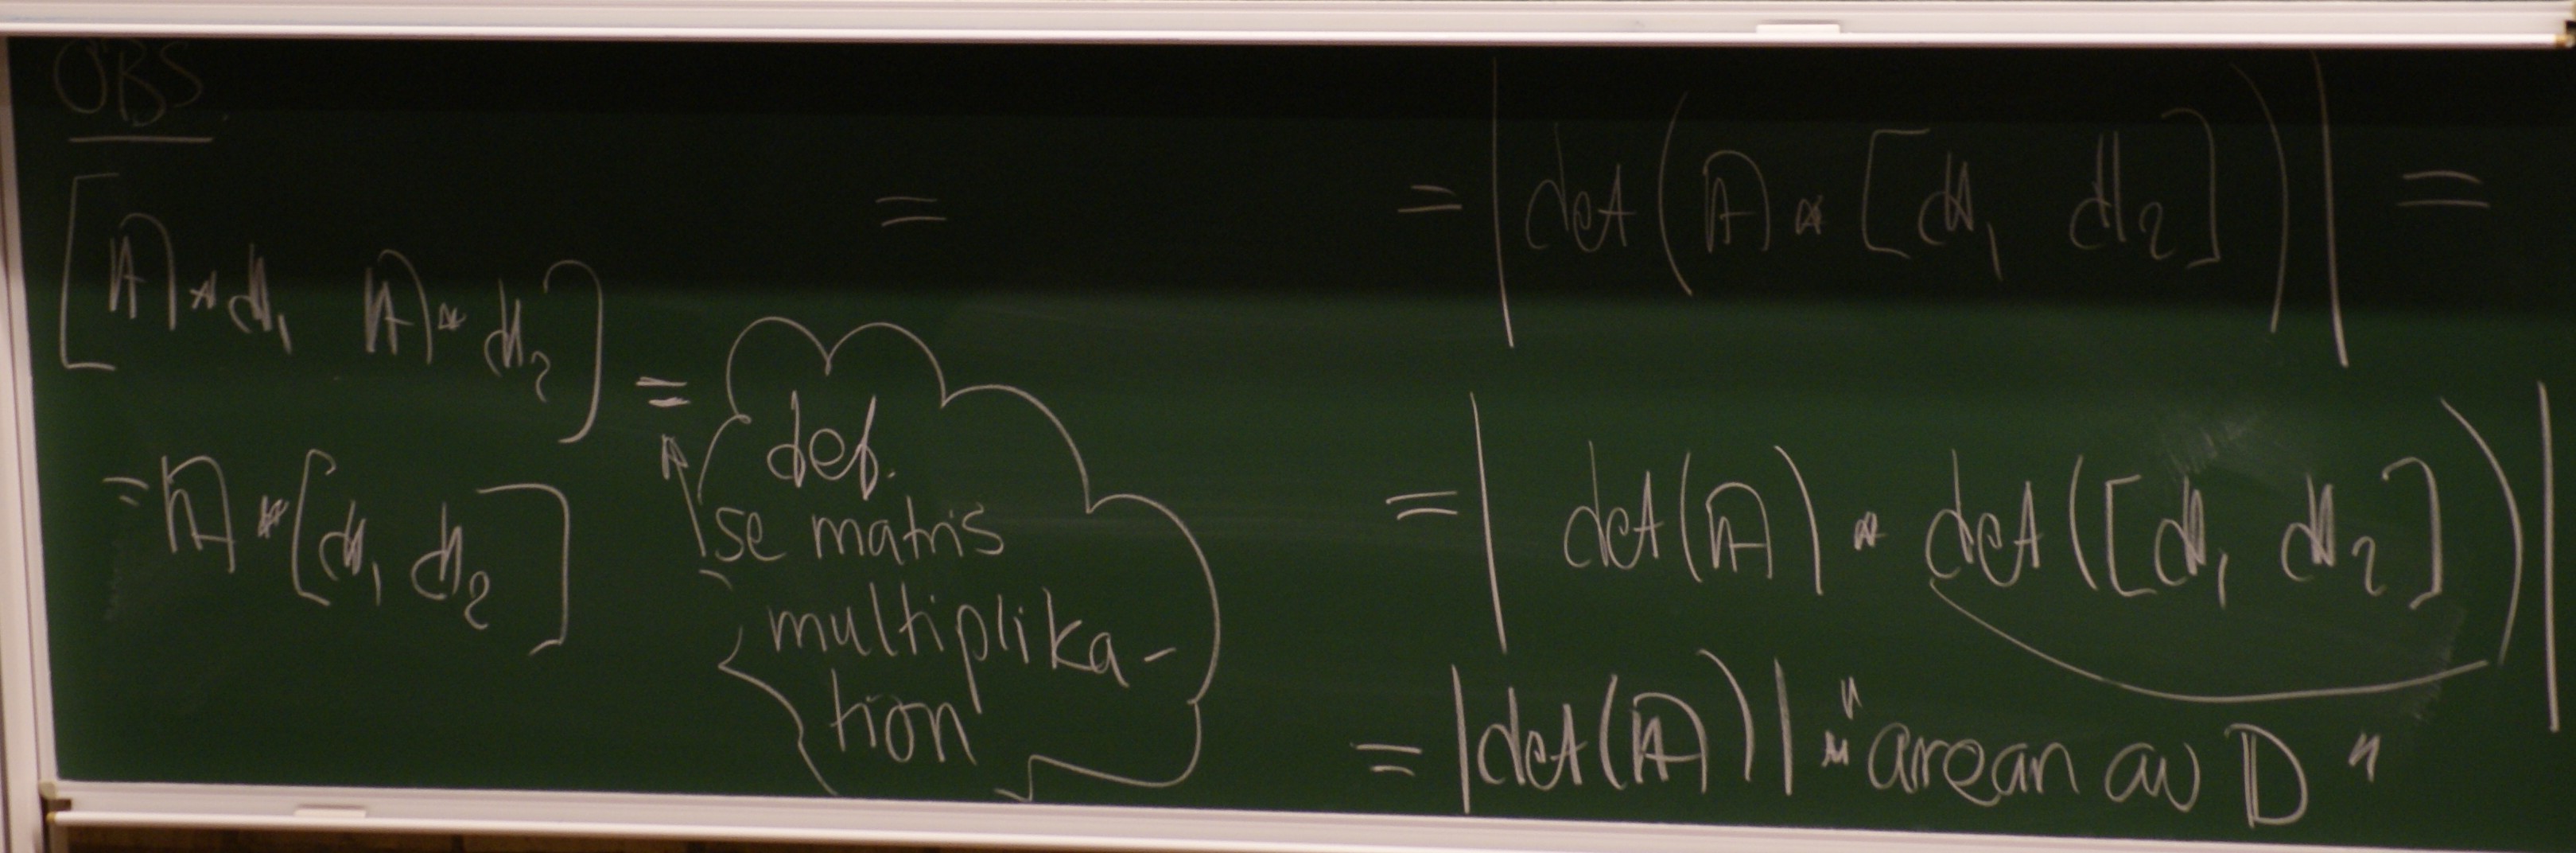 OBS.
[A * d₁ A * d₂] =
= A * [d₁ d₂]
def.
se matris
multiplika-
tion
=
= |det(A * [d₁ d₂])| =
= |det(A) * det([d₁ d₂])|
= |det(A)| * "arean av D"